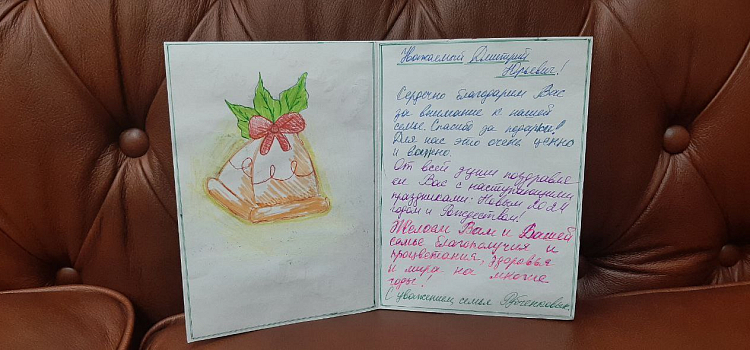 Уважаемый Дмитрий
Юрьевич!
Сердечно благодарим Вас
за внимание к нашей
семье. Спасибо за подарки!
Для нас это очень ценно
и важно.
От всей души поздравля
ем Вас с наступающими
праздниками - Новым 2024
годом и Рождеством!
Желаем Вам и Вашей
семье благополучия и
процветания, здоровья
и мира на многие
годы!
С уважением, семья